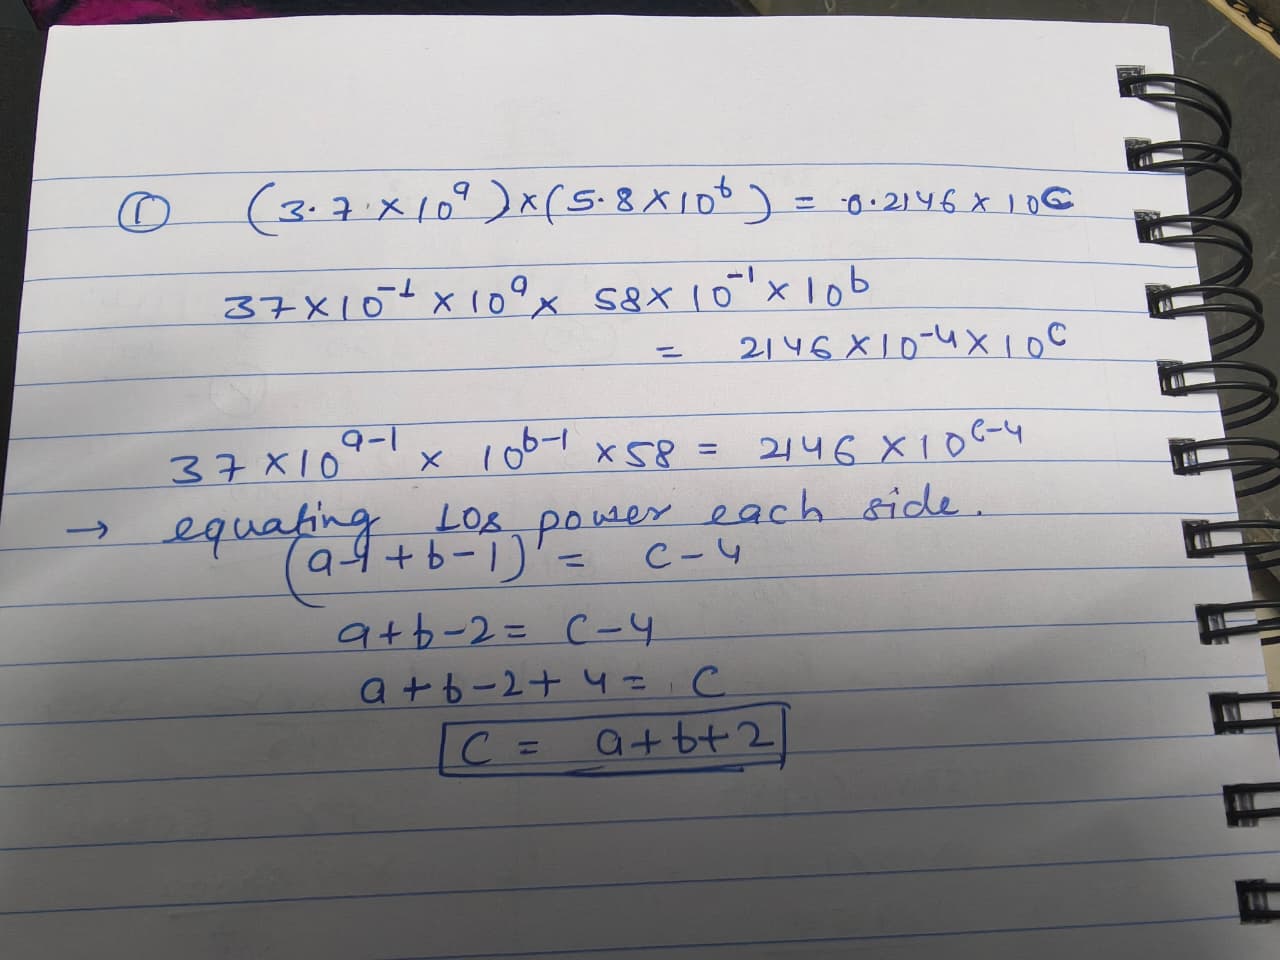 ① (3.7 × 10^a) × (5.8 × 10^b) = 0.2146 × 10^c
37 × 10^-1 × 10^a × 58 × 10^-1 × 10^b
= 2146 × 10^-4 × 10^c
37 × 10^a-1 × 10^b-1 × 58 = 2146 × 10^c-4
→ equating 10s power each side.
(a-1 + b-1) = c-4
a+b-2 = c-4
a+b-2+4 = c
c = a+b+2